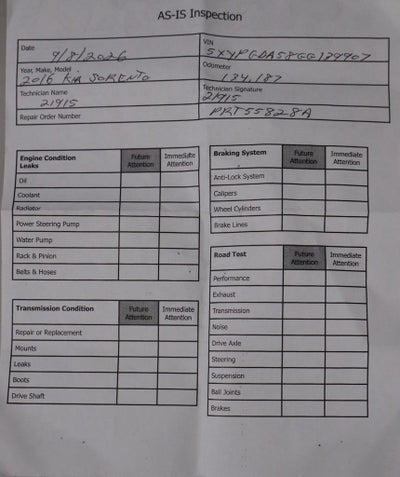 AS-IS Inspection
Date 9/8/2026
VIN 5XYPGDA58GG139907
Year, Make, Model 2016 KIA SORENTO
Odometer 134,187
Technician Name 21915
Technician Signature 21915
Repair Order Number PRT55828A
Engine Condition Leaks Future Attention Immediate Attention
Oil
Coolant
Radiator
Power Steering Pump
Water Pump
Rack & Pinion
Belts & Hoses
Transmission Condition Future Attention Immediate Attention
Repair or Replacement
Mounts
Leaks
Boots
Drive Shaft
Braking System Future Attention Immediate Attention
Anti-Lock System
Calipers
Wheel Cylinders
Brake Lines
Road Test Future Attention Immediate Attention
Performance
Exhaust
Transmission
Noise
Drive Axle
Steering
Suspension
Ball Joints
Brakes